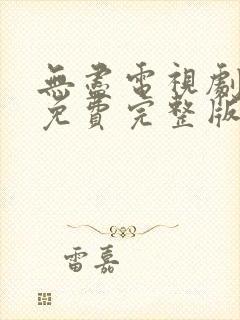 無盡電視劇
免費完整版
雷嘉